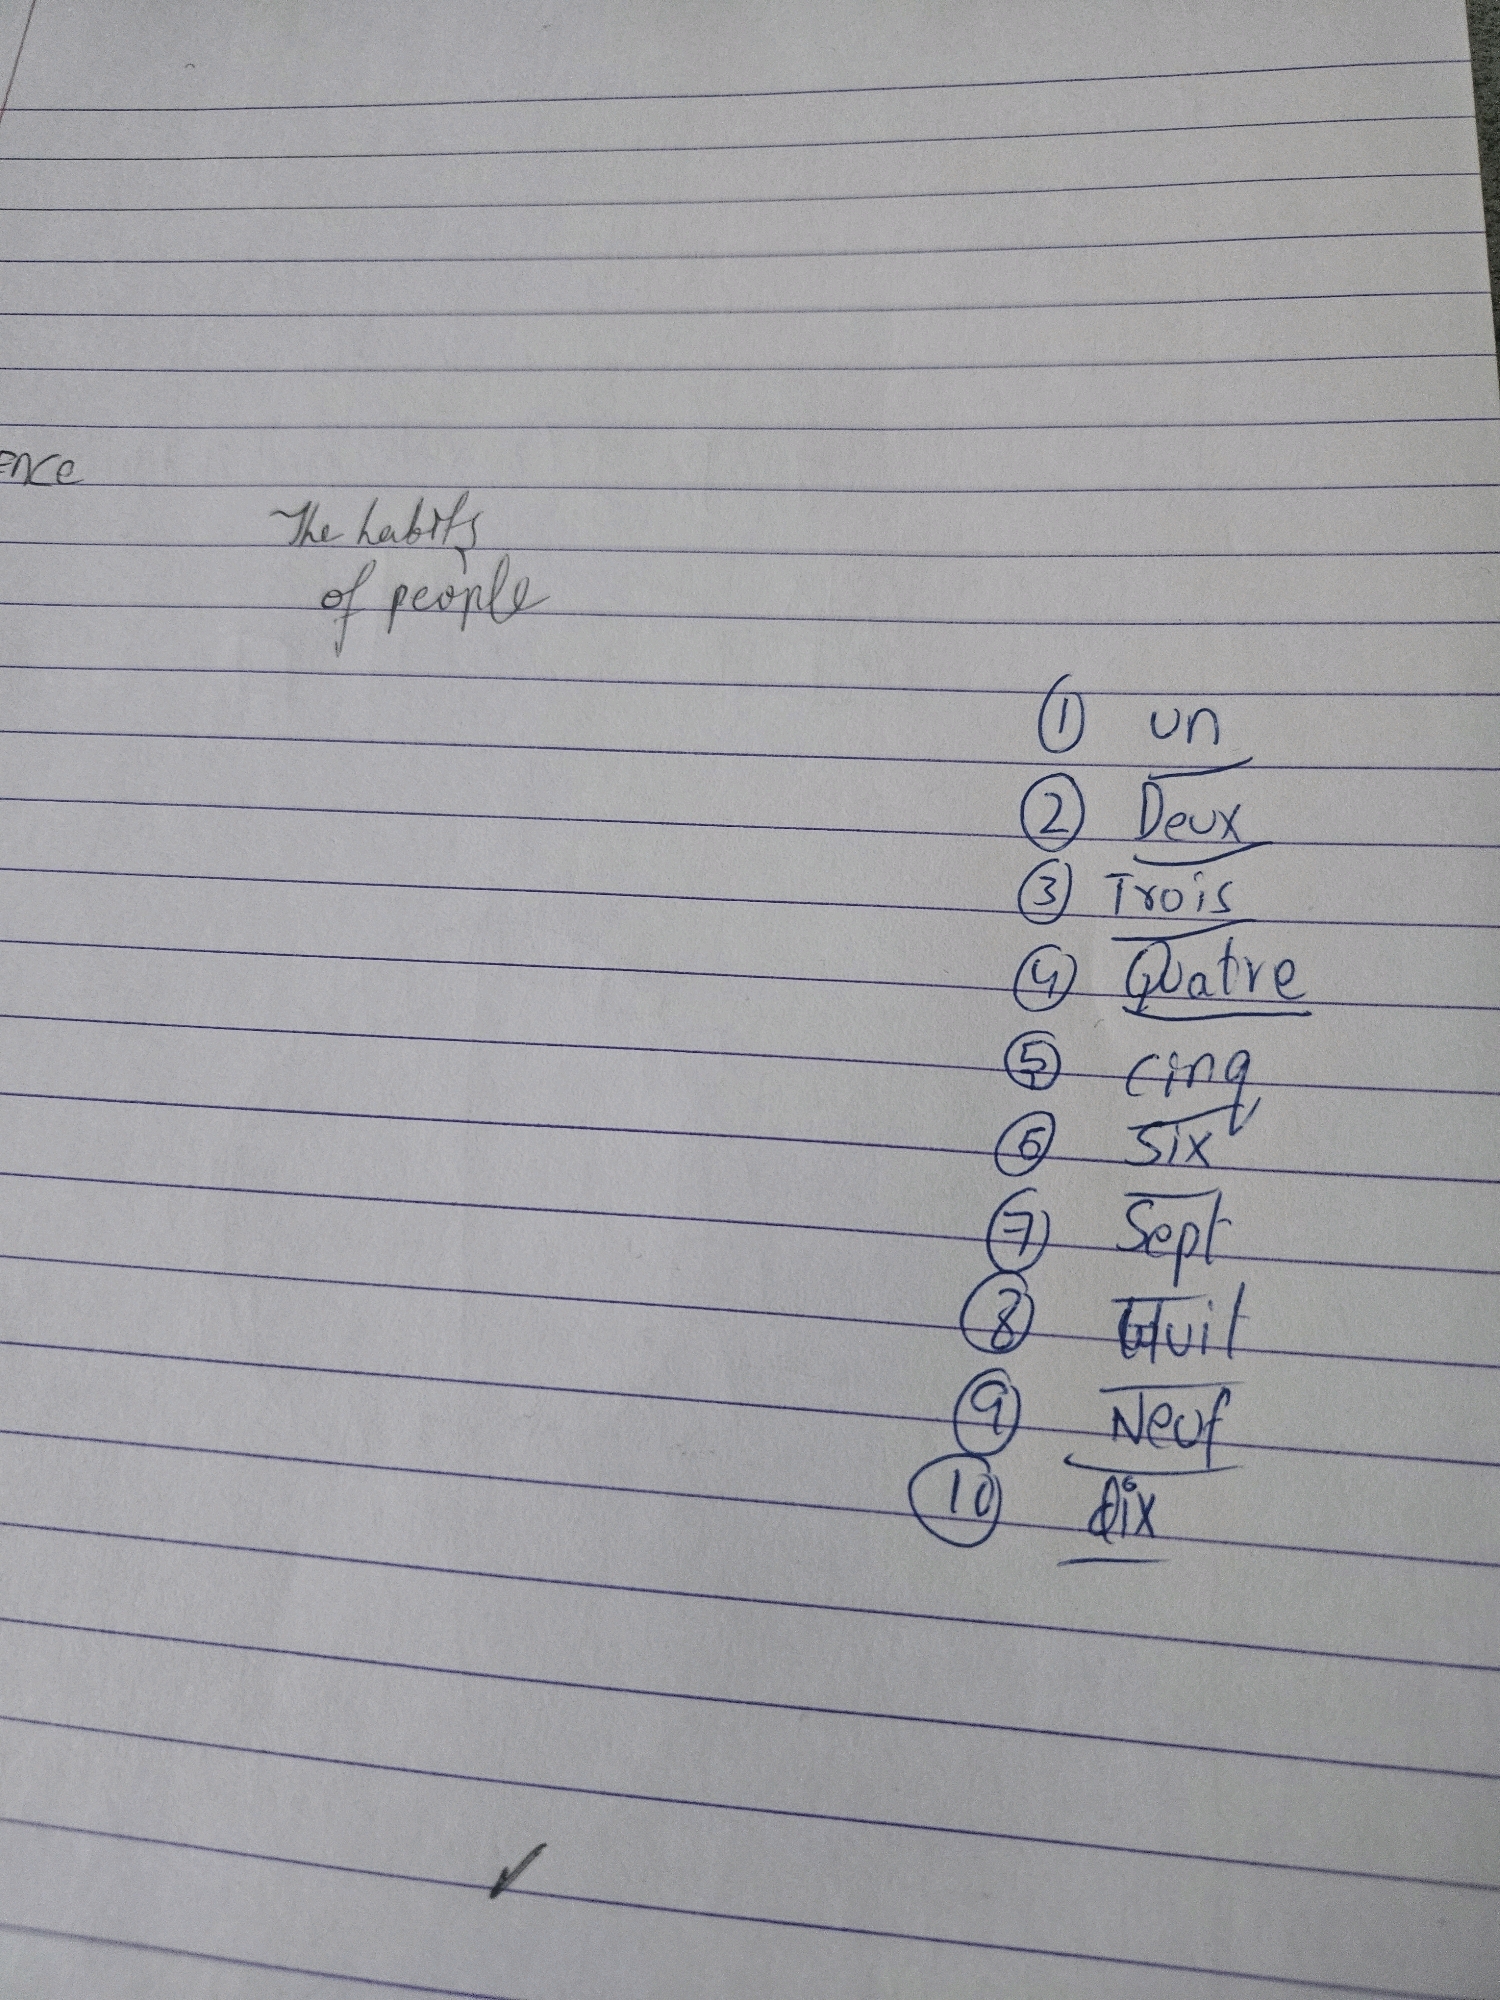 ence
The habits
of people
① un
② Deux
③ Trois
④ Quatre
⑤ cinq
⑥ Six
⑦ Sept
⑧ Huit
⑨ Neuf
⑩ dix